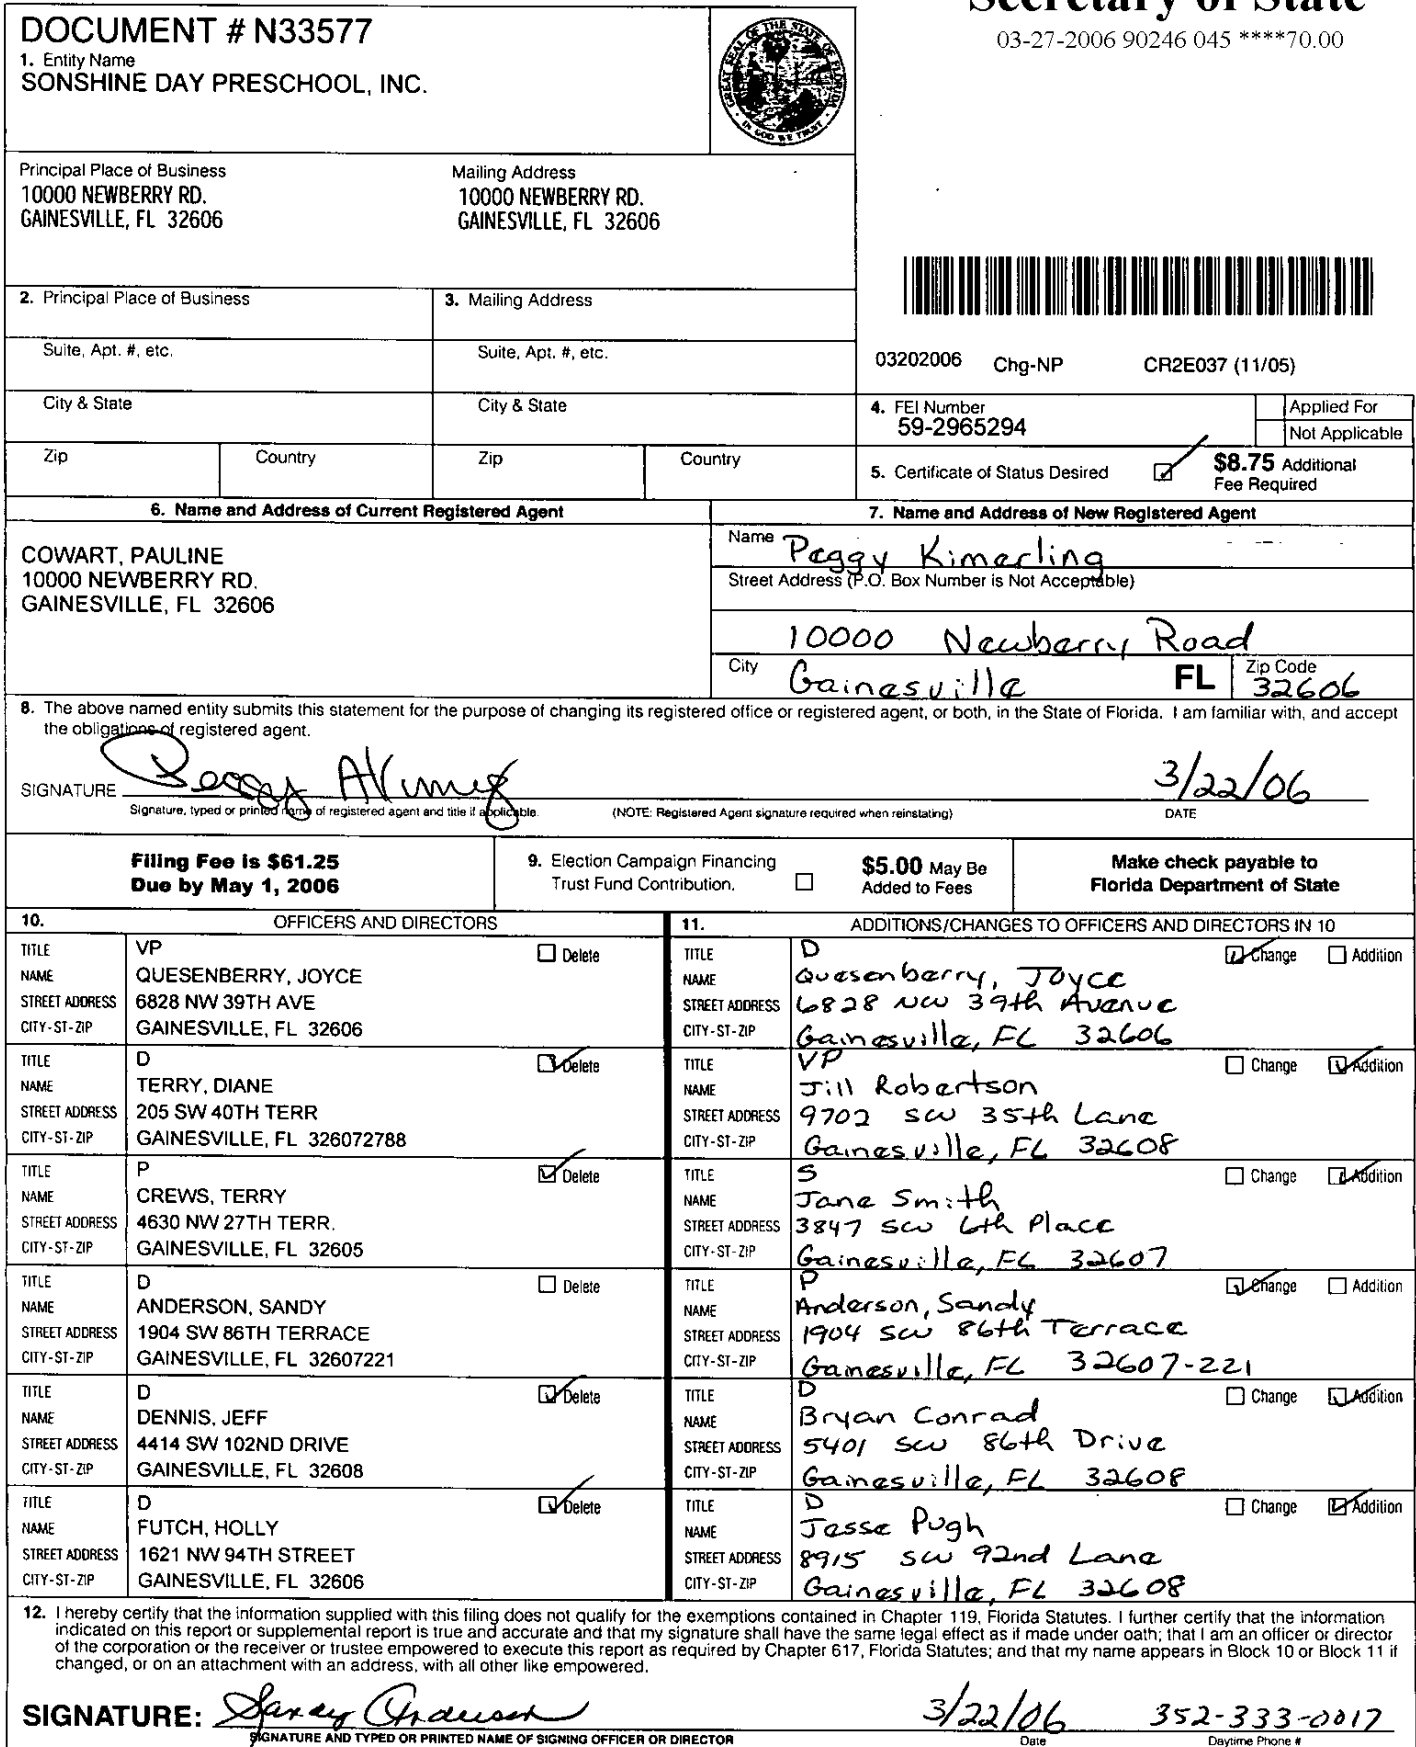 Secretary of State
03-27-2006 90246 045 ****70.00
DOCUMENT # N33577
1. Entity Name
SONSHINE DAY PRESCHOOL, INC.
GREAT SEAL OF THE STATE OF FLORIDA
IN GOD WE TRUST
Principal Place of Business
10000 NEWBERRY RD.
GAINESVILLE, FL 32606
Mailing Address
10000 NEWBERRY RD.
GAINESVILLE, FL 32606
2. Principal Place of Business
3. Mailing Address
Suite, Apt. #, etc.
Suite, Apt. #, etc.
03202006 Chg-NP CR2E037 (11/05)
City & State
City & State
4. FEI Number
59-2965294
Applied For
Not Applicable
Zip Country
Zip Country
5. Certificate of Status Desired
$8.75 Additional
Fee Required
6. Name and Address of Current Registered Agent
COWART, PAULINE
10000 NEWBERRY RD.
GAINESVILLE, FL 32606
7. Name and Address of New Registered Agent
Name Peggy Kimerling
Street Address (P.O. Box Number is Not Acceptable)
10000 Newberry Road
City Gainesville FL Zip Code 32606
8. The above named entity submits this statement for the purpose of changing its registered office or registered agent, or both, in the State of Florida. I am familiar with, and accept
the obligations of registered agent.
SIGNATURE Peggy 3/22/06
Signature, typed or printed name of registered agent and title if applicable. (NOTE: Registered Agent signature required when reinstating) DATE
Filing Fee is $61.25
Due by May 1, 2006
9. Election Campaign Financing
Trust Fund Contribution.
$5.00 May Be
Added to Fees
Make check payable to
Florida Department of State
10. OFFICERS AND DIRECTORS
11. ADDITIONS/CHANGES TO OFFICERS AND DIRECTORS IN 10
TITLE VP Delete
NAME QUESENBERRY, JOYCE
STREET ADDRESS 6828 NW 39TH AVE
CITY-ST-ZIP GAINESVILLE, FL 32606
TITLE D Change Addition
NAME Quesenberry, Joyce
STREET ADDRESS 6828 NW 39th Avenue
CITY-ST-ZIP Gainesville, FL 32606
TITLE D Delete
NAME TERRY, DIANE
STREET ADDRESS 205 SW 40TH TERR
CITY-ST-ZIP GAINESVILLE, FL 326072788
TITLE VP Change Addition
NAME Jill Robertson
STREET ADDRESS 9702 SW 35th Lane
CITY-ST-ZIP Gainesville, FL 32608
TITLE P Delete
NAME CREWS, TERRY
STREET ADDRESS 4630 NW 27TH TERR.
CITY-ST-ZIP GAINESVILLE, FL 32605
TITLE S Change Addition
NAME Jane Smith
STREET ADDRESS 3847 SW 6th Place
CITY-ST-ZIP Gainesville, FL 32607
TITLE D Delete
NAME ANDERSON, SANDY
STREET ADDRESS 1904 SW 86TH TERRACE
CITY-ST-ZIP GAINESVILLE, FL 32607221
TITLE P Change Addition
NAME Anderson, Sandy
STREET ADDRESS 1904 SW 86th Terrace
CITY-ST-ZIP Gainesville, FL 32607-221
TITLE D Delete
NAME DENNIS, JEFF
STREET ADDRESS 4414 SW 102ND DRIVE
CITY-ST-ZIP GAINESVILLE, FL 32608
TITLE D Change Addition
NAME Bryan Conrad
STREET ADDRESS 5401 SW 86th Drive
CITY-ST-ZIP Gainesville, FL 32608
TITLE D Delete
NAME FUTCH, HOLLY
STREET ADDRESS 1621 NW 94TH STREET
CITY-ST-ZIP GAINESVILLE, FL 32606
TITLE D Change Addition
NAME Jesse Pugh
STREET ADDRESS 8915 SW 92nd Lane
CITY-ST-ZIP Gainesville, FL 32608
12. I hereby certify that the information supplied with this filing does not qualify for the exemptions contained in Chapter 119, Florida Statutes. I further certify that the information
indicated on this report or supplemental report is true and accurate and that my signature shall have the same legal effect as if made under oath; that I am an officer or director
of the corporation or the receiver or trustee empowered to execute this report as required by Chapter 617, Florida Statutes; and that my name appears in Block 10 or Block 11 if
changed, or on an attachment with an address, with all other like empowered.
SIGNATURE: Sandy Anderson 3/22/06 352-333-0017
SIGNATURE AND TYPED OR PRINTED NAME OF SIGNING OFFICER OR DIRECTOR Date Daytime Phone #